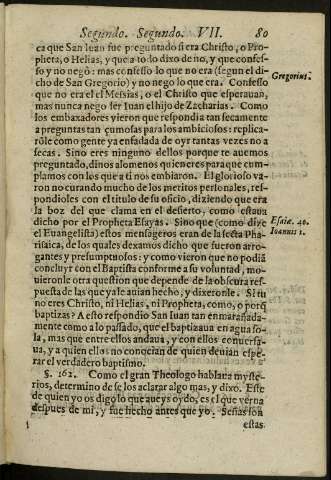 Segundo. Segundo. VII. 80
ca que San Iuan fue preguntado si era Christo, o Pro-
pheta, o Helias, y que a todo dixo de no, y que confes-
so y no negò: mas confesso lo que no era (segun el di-
cho de San Gregorio) y no nego lo que era. Confesso
Gregorius.
que no era el el Messias, o el Christo que esperauan,
mas nunca nego ser Iuan el hijo de Zacharias. Como
los embaxadores vieron que respondia tan secamente
a preguntas tan çumosas para los ambiciosos: replica-
rõle como gente ya enfadada de oyr tantas vezes no a
secas. Sino eres ninguno dellos porque te auemos
preguntado, dinos alomenos quien eres para que cum-
plamos con los que a ti nos embiaron. El glorioso va-
ron no curando mucho de los meritos personales, res-
pondioles con el titulo de su oficio, diziendo que era
la boz del que clama en el desierto, como estaua
dicho por el Propheta Esayas. Sino que (como dize
Esaiæ. 40.
el Euangelista) estos mensageros eran de la secta Pha-
Ioannis 1.
risaica, de los quales dexamos dicho que fueron arro-
gantes y presumptuosos: y como vieron que no podiã
concluyr con el Baptista conforme a su voluntad, mo-
uieronle otra question que depende de la obscura res-
puesta de las que ya le auian hecho, y dixeronle. Si tu
no eres Christo, ni Helias, ni Propheta, como, o porq̃
baptizas? A esto respondio San Iuan tan enmarañada-
mente como a lo passado, que el baptizaua en agua so-
la, mas que entre ellos andaua, y con ellos conuersa-
ua, y a quien ellos no conocian de quien deuian espe-
rar el verdadero baptismo.
§. 162. Como el gran Theologo hablaua myste-
rios, determino de se los aclarar algo mas, y dixo. Este
de quien yo os digo lo que aueys oydo, es el que verna
despues de mi, y fue hecho antes que yo. Señas son
estas